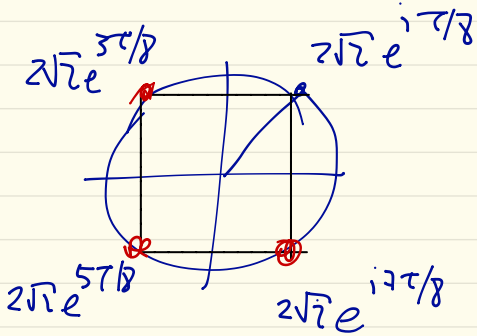 2√2 e^{3π/8}
2√2 e^{iπ/8}
2√2 e^{5π/8}
2√2 e^{i7π/8}